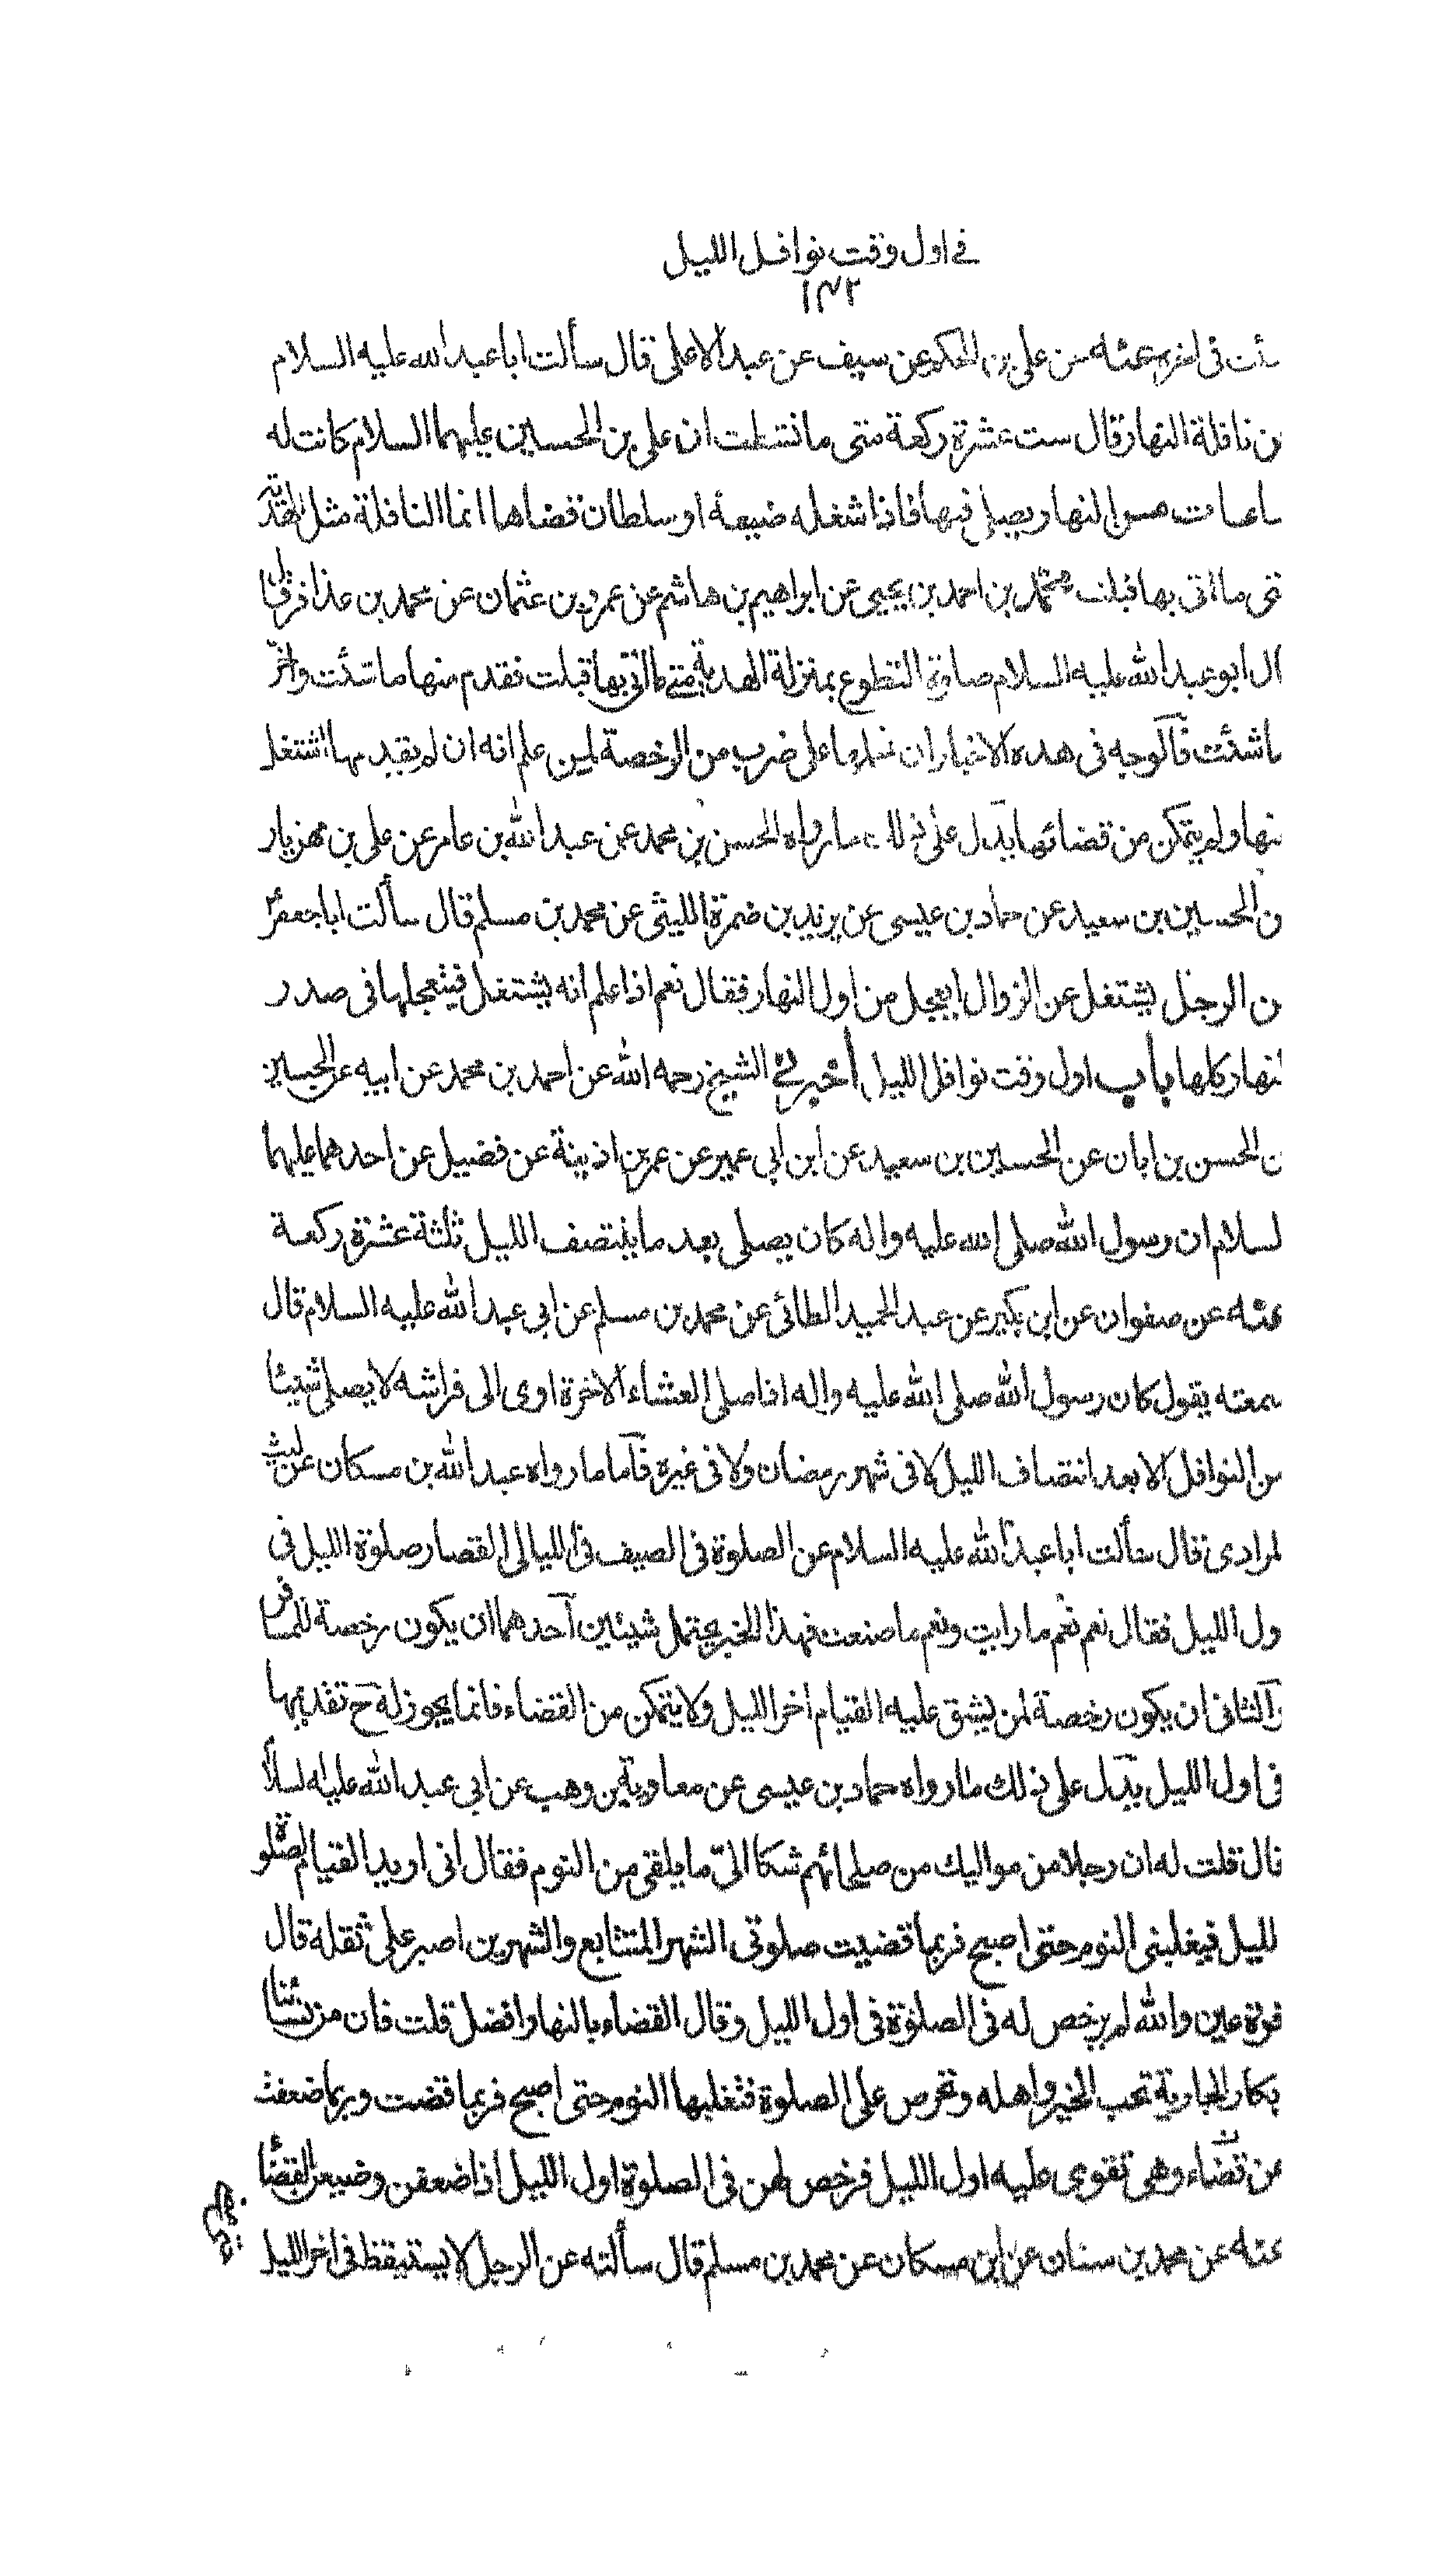 في اول وقت نوافل الليل
١٤٢
شئت في اخره عنه عن علي بن الحكم عن سيف عن عبد الاعلى قال سألت ابا عبد الله عليه السلام
عن نافلة النهار قال ست عشرة ركعة متى ما نشطت ان علي بن الحسين عليهما السلام كانت له
ساعات من النهار يصلي فيها فاذا شغله ضيعة او سلطان قضاها انما النافلة مثل الهدية
متى ما اتى بها قبلت محمد بن احمد بن يحيى عن ابراهيم بن هاشم عن عمرو بن عثمان عن محمد بن عذافر قال
قال ابو عبد الله عليه السلام صلوة التطوع بمنزلة الهدية متى ما اتى بها قبلت فقدم منها ما شئت واخر
ما شئت فالوجه في هذه الاخبار ان نحملها على ضرب من الرخصة لمن علم انه ان لم يقدمها اشتغل
عنها ولم يتمكن من قضائها يدل على ذلك ما رواه الحسن بن محمد عن عبد الله بن عامر عن علي بن مهزيار
عن الحسين بن سعيد عن حماد بن عيسى عن يزيد بن ضمرة الليثي عن محمد بن مسلم قال سألت ابا جعفر ع
عن الرجل يشتغل عن الزوال ايعجل من اول النهار فقال نعم اذا علم انه يشتغل فيتعجلها في صدر
النهار كلها باب اول وقت نوافل الليل أخبرني الشيخ رحمه الله عن احمد بن محمد عن ابيه عن الحسين
بن الحسن بن ابان عن الحسين بن سعيد عن ابن ابي عمير عن عمر بن اذينة عن فضيل عن احدهما عليهما
السلام ان رسول الله صلى الله عليه واله كان يصلي بعد ما ينتصف الليل ثلثة عشرة ركعة
عنه عن صفوان عن ابن بكير عن عبد الحميد الطائي عن محمد بن مسلم عن ابي عبد الله عليه السلام قال
سمعته يقول كان رسول الله صلى الله عليه واله اذا صلى العشاء الاخرة اوى الى فراشه لا يصلي شيئا
من النوافل الا بعد انتصاف الليل لا في شهر رمضان ولا في غيره فآما ما رواه عبد الله بن مسكان عن ليث
المرادي قال سألت ابا عبد الله عليه السلام عن الصلوة في الصيف في الليالي القصار صلوة الليل في
اول الليل فقال نعم نعم ما رايت ونعم ما صنعت فهذا الخبر يحتمل شيئين آحدهما ان يكون رخصة للمسافر
وآلثاني ان يكون رخصة لمن يشق عليه القيام اخر الليل ولا يتمكن من القضاء فانما يجوز له ح تقديمها
في اول الليل يدل على ذلك ما رواه حماد بن عيسى عن معاوية بن وهب عن ابي عبد الله عليه السلام
قال قلت له ان رجلا من مواليك من صلحائهم شكا اليّ ما يلقى من النوم فقال اني اريد القيام لصلوة
الليل فيغلبني النوم حتى اصبح فربما قضيت صلوتي الشهر المتتابع والشهرين اصبر على ثقله قال
قرة عين والله لم يرخص له في الصلوة في اول الليل وقال القضاء بالنهار افضل قلت فان من نسائنا
ابكار الجارية تحب الخير واهله وتحرص على الصلوة فتغلبها النوم حتى اصبح فربما قضت وربما ضعفت
عن قضاء وهي تقوى عليه اول الليل فرخص لهن في الصلوة اول الليل اذا ضعفن وضيعن القضاء
عنه عن محمد بن سنان عن ابن مسكان عن محمد بن مسلم قال سألته عن الرجل لا يستيقظ في اخر الليل